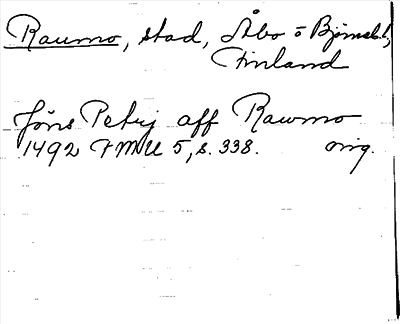 Raumo, stad, Åbo o Björneb. l,
Finland
Jöns Petrj aff Rawmo
1492 FMU 5, s. 338. orig.